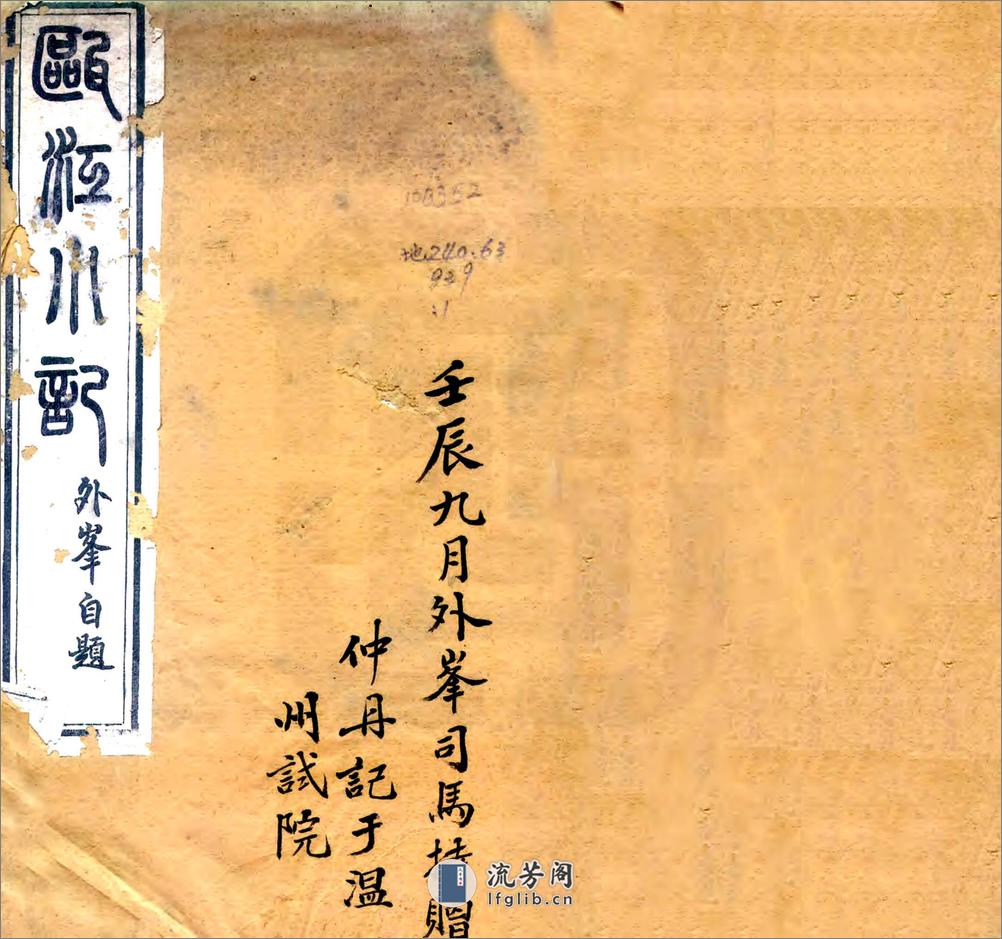 甌江小記
外峯自題
地240.63
929
:1
壬辰九月外峯司馬贈
仲丹記于温
州試院
流芳阁
lfglib.cn